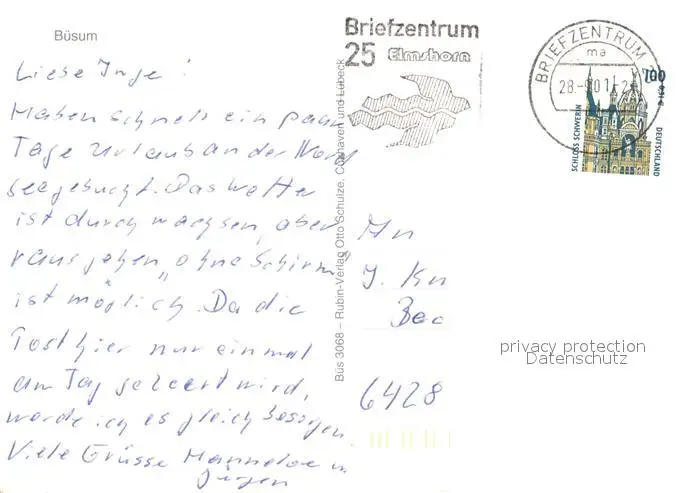 Büsum
Liebe Inge!
Haben schnell ein paar
Tage Urlaub an der Nord
seegebucht. Das Wetter
ist durchwachsen, aber
rausgehen „ohne Schirm"
ist möglich. Da die
Post hier nur einmal
am Tag geleert wird,
werde ich es gleich besorgen.
Viele Grüsse Hannelore u
Jürgen
Büs 3068 – Rubin-Verlag Otto Schulze, Cuxhaven und Lübeck
Briefzentrum
25 Elmshorn
BRIEFZENTRUM
ma
28-9.01-2
100
SCHLOSS SCHWERIN
DEUTSCHLAND
An
I. Kn
Bec
6428
privacy protection
Datenschutz